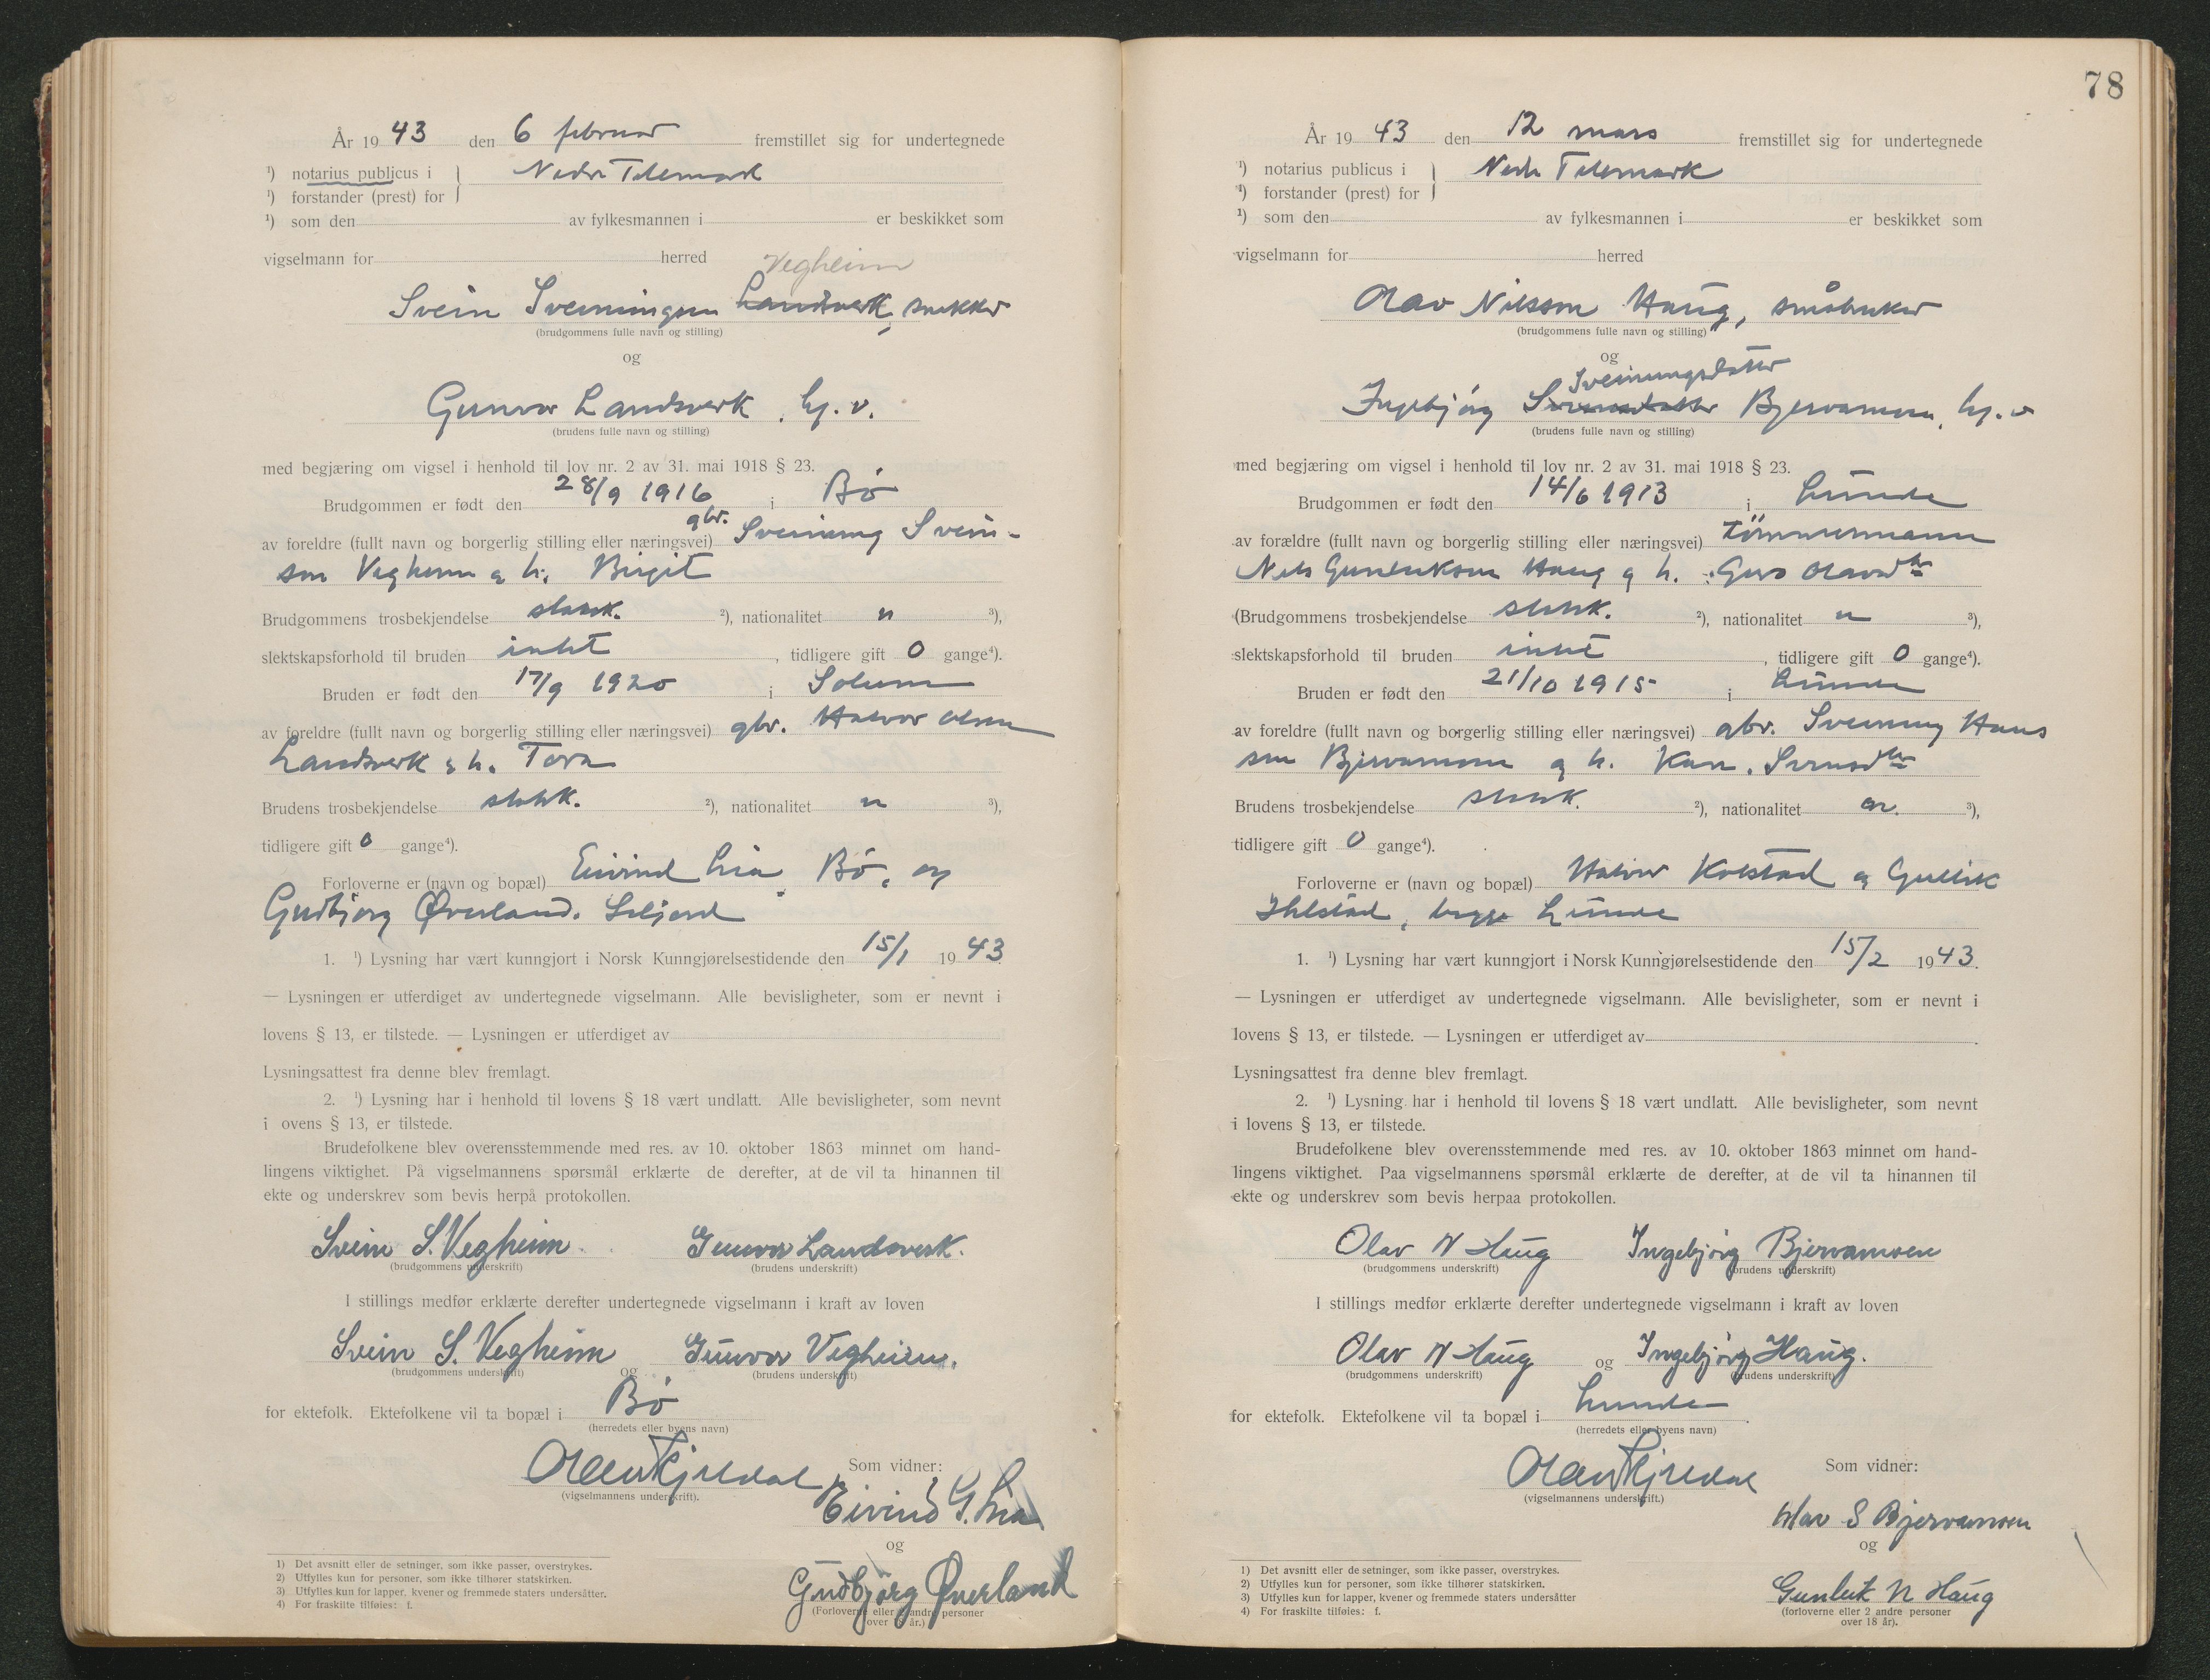 År 1943 den 6 februar fremstillet sig for undertegnede
¹) notarius publicus i } Nedre Telemark
¹) forstander (prest) for
¹) som den av fylkesmannen i er beskikket som
vigselmann for herred Vegheim
Svein Sveinungsen Landsverk, snekker
(brudgommens fulle navn og stilling)
og
Gunvor Landsverk, hj. v.
(brudens fulle navn og stilling)
med begjæring om vigsel i henhold til lov nr. 2 av 31. mai 1918 § 23.
Brudgommen er født den 28/9 1916 i Bø
av foreldre (fullt navn og borgerlig stilling eller næringsvei) gbr. Sveinung Svein-
son Vegheim og h. Birgit
Brudgommens trosbekjendelse statsk. ²), nationalitet n ³),
slektskapsforhold til bruden intet, tidligere gift 0 gange⁴).
Bruden er født den 17/9 1920 i Solum
av foreldre (fullt navn og borgerlig stilling eller næringsvei) gbr. Halvor Olsen
Landsverk og h. Tora
Brudens trosbekjendelse statsk. ²), nationalitet n ³),
tidligere gift 0 gange⁴).
Forloverne er (navn og bopæl) Eivind Lia, Bø, og
Gudbjørg Øverland, Seljord
1. ¹) Lysning har vært kunngjort i Norsk Kunngjørelsestidende den 15/1 1943.
— Lysningen er utferdiget av undertegnede vigselmann. Alle bevisligheter, som er nevnt i
lovens § 13, er tilstede. — Lysningen er utferdiget av
Lysningsattest fra denne blev fremlagt.
2. ¹) Lysning har i henhold til lovens § 18 vært undlatt. Alle bevisligheter, som nevnt
i ovens § 13, er tilstede.
Brudefolkene blev overensstemmende med res. av 10. oktober 1863 minnet om hand-
lingens viktighet. På vigselmannens spørsmål erklærte de derefter, at de vil ta hinannen til
ekte og underskrev som bevis herpå protokollen.
Svein S. Vegheim Gunvor Landsverk.
(brudgommens underskrift) (brudens underskrift)
I stillings medfør erklærte derefter undertegnede vigselmann i kraft av loven
Svein S. Vegheim og Gunvor Vegheim.
(brudgommens underskrift) (brudens underskrift)
for ektefolk. Ektefolkene vil ta bopæl i Bø
(herredets eller byens navn)
Som vidner:
(vigselmannens underskrift).
Eivind G. Lia
og
Gudbjørg Øverland
(Forloverne eller 2 andre personer
over 18 år.)
1) Det avsnitt eller de setninger, som ikke passer, overstrykes.
2) Utfylles kun for personer, som ikke tilhører statskirken.
3) Utfylles kun for lapper, kvener og fremmede staters undersåtter.
4) For fraskilte tilføies: f.
78
År 1943 den 12 mars fremstillet sig for undertegnede
¹) notarius publicus i } Nedre Telemark
¹) forstander (prest) for
¹) som den av fylkesmannen i er beskikket som
vigselmann for herred
Olav Nilsson Haug, småbruker
(brudgommens fulle navn og stilling)
og
Sveinungsdatter
Ingebjørg Svensdatter Bjervamoen, hj. v
(brudens fulle navn og stilling)
med begjæring om vigsel i henhold til lov nr. 2 av 31. mai 1918 § 23.
Brudgommen er født den 14/6 1913 i Lunde
av forældre (fullt navn og borgerlig stilling eller næringsvei) tømmermann
Nils Gunleiksen Haug og h. Guro Olavsdtr
(Brudgommens trosbekjendelse statsk. ²), nationalitet n ³),
slektskapsforhold til bruden intet, tidligere gift 0 gange⁴).
Bruden er født den 21/10 1915 i Lunde
av foreldre (fullt navn og borgerlig stilling eller næringsvei) gbr. Sveinung Hans
sen Bjervamoen og h. Kari Svensdtr
Brudens trosbekjendelse statsk. ²), nationalitet n. ³),
tidligere gift 0 gange⁴).
Forloverne er (navn og bopæl) Halvor Kolstad og Gullik
Ihlstad, begge Lunde
1. ¹) Lysning har vært kunngjort i Norsk Kunngjørelsestidende den 15/2 1943.
— Lysningen er utferdiget av undertegnede vigselmann. Alle bevisligheter, som er nevnt i
lovens § 13, er tilstede. — Lysningen er utferdiget av
Lysningsattest fra denne blev fremlagt.
2. ¹) Lysning har i henhold til lovens § 18 vært undlatt. Alle bevisligheter, som nevnt
i lovens § 13, er tilstede.
Brudefolkene blev overensstemmende med res. av 10. oktober 1863 minnet om hand-
lingens viktighet. Paa vigselmannens spørsmål erklærte de derefter, at de vil ta hinannen til
ekte og underskrev som bevis herpaa protokollen.
Olav N Haug Ingebjørg Bjervamoen
(brudgommens underskrift) (brudens underskrift)
I stillings medfør erklærte derefter undertegnede vigselmann i kraft av loven
Olav N Haug og Ingebjørg Haug.
(brudgommens underskrift) (brudens underskrift)
for ektefolk. Ektefolkene vil ta bopæl i Lunde
(herredets eller byens navn)
Som vidner:
(vigselmannens underskrift.)
Olav S Bjervamoen
og
Gunleik N Haug
(forloverne eller 2 andre personer
over 18 år).
1) Det avsnitt eller de setninger, som ikke passer, overstrykes.
2) Utfylles kun for personer, som ikke tilhører statskirken.
3) Utfylles kun for lapper, kvener og fremmede staters undersåtter
4) For fraskilte tilføies: f.